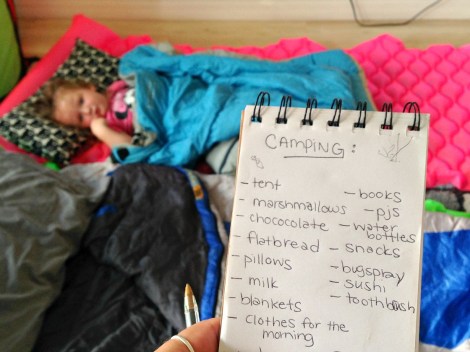 CAMPING:
- tent
- marshmallows
- chococolate
- flatbread
- pillows
- milk
- blankets
- clothes for the
morning
- books
- pjs
- water
bottles
- snacks
- bugspray
- sushi
- toothbrush